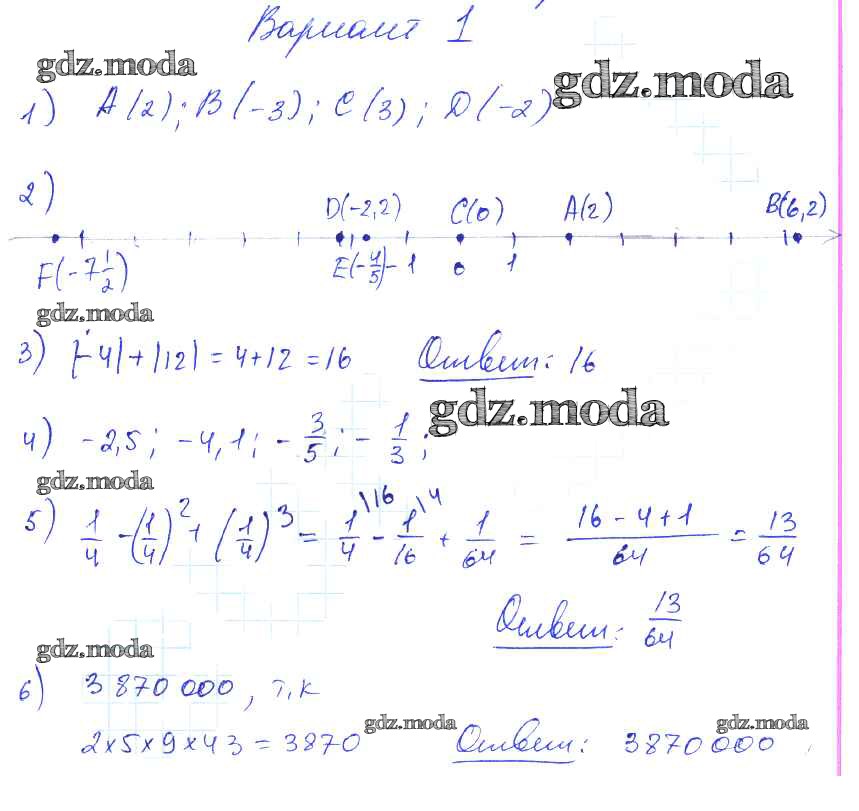 Вариант 1
gdz.moda
gdz.moda
1) A(2); B(-3); C(3); D(-2)
2)
D(-2,2) C(0) A(2) B(6,2)
F(-7 1/2) E(-4/5) -1 0 1
gdz.moda
3) |-4|+|12| = 4+12 = 16 Ответ: 16
gdz.moda
4) -2,5; -4,1; -3/5; -1/3;
gdz.moda
5) 1/4 - (1/4)² + (1/4)³ = 1/4 \16 - 1/16 \4 + 1/64 = 16-4+1/64 = 13/64
Ответ: 13/64
gdz.moda
6) 3 870 000, т,к
gdz.moda gdz.moda
2×5×9×43 = 3870 Ответ: 3870000